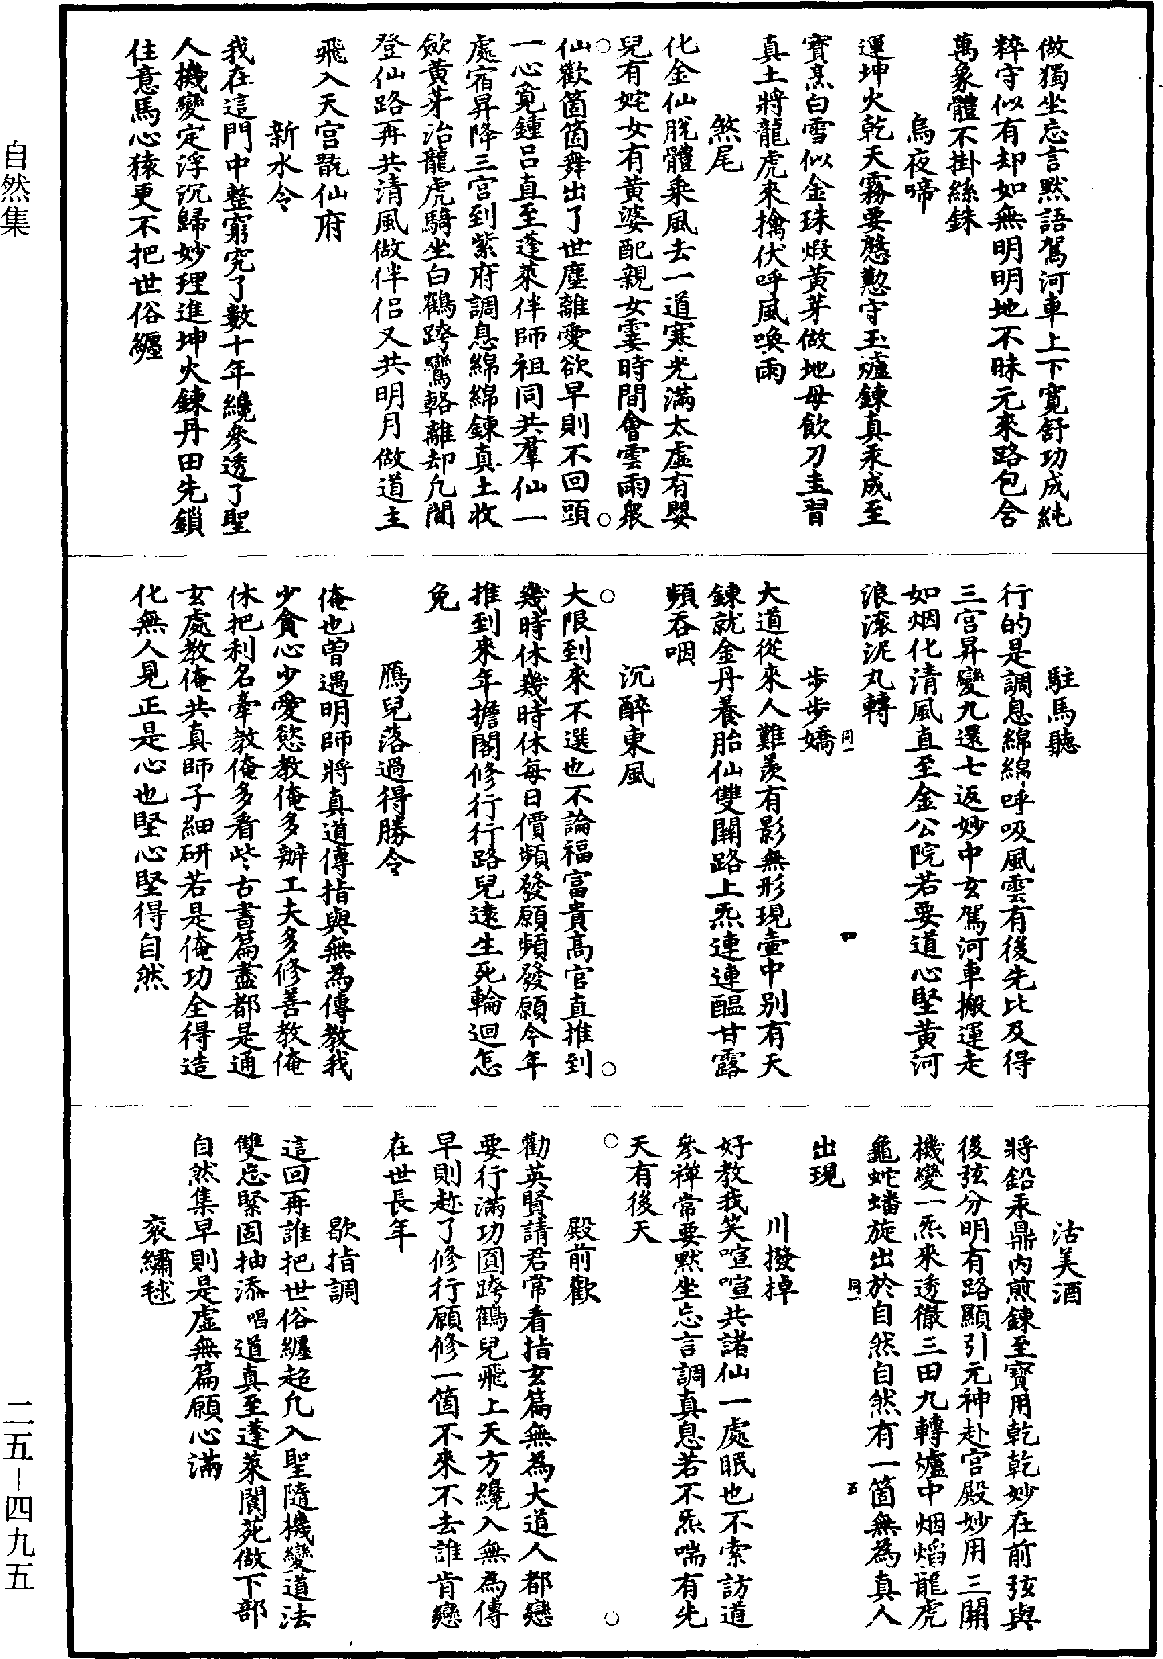 做獨坐忘言黙語駕河車上下寬舒功成純
粹守似有却如無明明地不昧元來路包含
萬象體不掛絲銖
烏夜啼
運坤火乾天霧要慇懃守玉爐鍊真汞成至
寶烹白雪似金珠煅黃芽做地母飲刀圭習
真土將龍虎來擒伏呼風喚雨
煞尾
化金仙脫體乘風去一道寒光滿太虛有嬰
兒有姹女有黃婆配親女霎時間會雲雨衆
仙歡箇箇舞出了世塵離愛欲早則不回頭
一心覓鍾呂真至蓬萊伴師祖同共羣仙一
處宿昇降三宮到紫府調息綿綿鍊真土收
歛黃芽治龍虎騎坐白鶴跨鸞輅離却凡間
登仙路再共清風做伴侶又共明月做道主
飛入天宮翫仙府
新水令
我在這門中整窮究了數十年纔參透了聖
人機變定浮沉歸妙理進坤火鍊丹田先鎖
住意馬心猿更不把世俗纏
駐馬聽
行的是調息綿綿呼吸風雲有後先比及得
三宮昇變九還七返妙中玄駕河車搬運走
如烟化清風直至金公院若要道心堅黃河
浪滾泥丸轉
步步嬌
大道從來人難羨有影無形現壷中別有天
鍊就金丹養胎仙雙關路上炁連連醞甘露
頻吞咽
沉醉東風
大限到來不選也不論福富貴高官直推到
幾時休幾時休每日價頻發願頻發願今年
推到來年擔閣修行行路兒遠生死輪迴怎
免
鴈兒落過得勝令
俺也曽遇明師將真道傳指與無為傳教我
少貪心少愛慾教俺多辦工夫多修善教俺
休把利名牽教俺多看些古書篇盡都是通
玄處教俺共真師子細研若是俺功全得造
化無人見正是心也堅心堅得自然
沽美酒
將鉛汞鼎內煎鍊至寶用乾乾妙在前弦與
後弦分明有路顯引元神赴宮殿妙用三關
機變一炁來透徹三田九轉爐中烟焰龍虎
龜蛇蟠旋出於自然自然有一箇無為真人
出現
川撥棹
好教我笑喧喧共諸仙一處眠也不索訪道
參禪常要黙坐忘言調真息若不炁喘有先
天有後天
殿前歡
勸英賢請君常看指玄篇無為大道人都戀
要行滿功圓跨鶴兒飛上天方纔入無為傳
早則趂了修行願修一箇不來不去誰肯戀
在世長年
歇指調
這回再誰把世俗纏超凡入聖隨機變道法
雙忘緊固抽添唱道真至蓬萊閬苑做下部
自然集早則是虛無篇願心滿
衮繡毬
自然集
二五－四九五